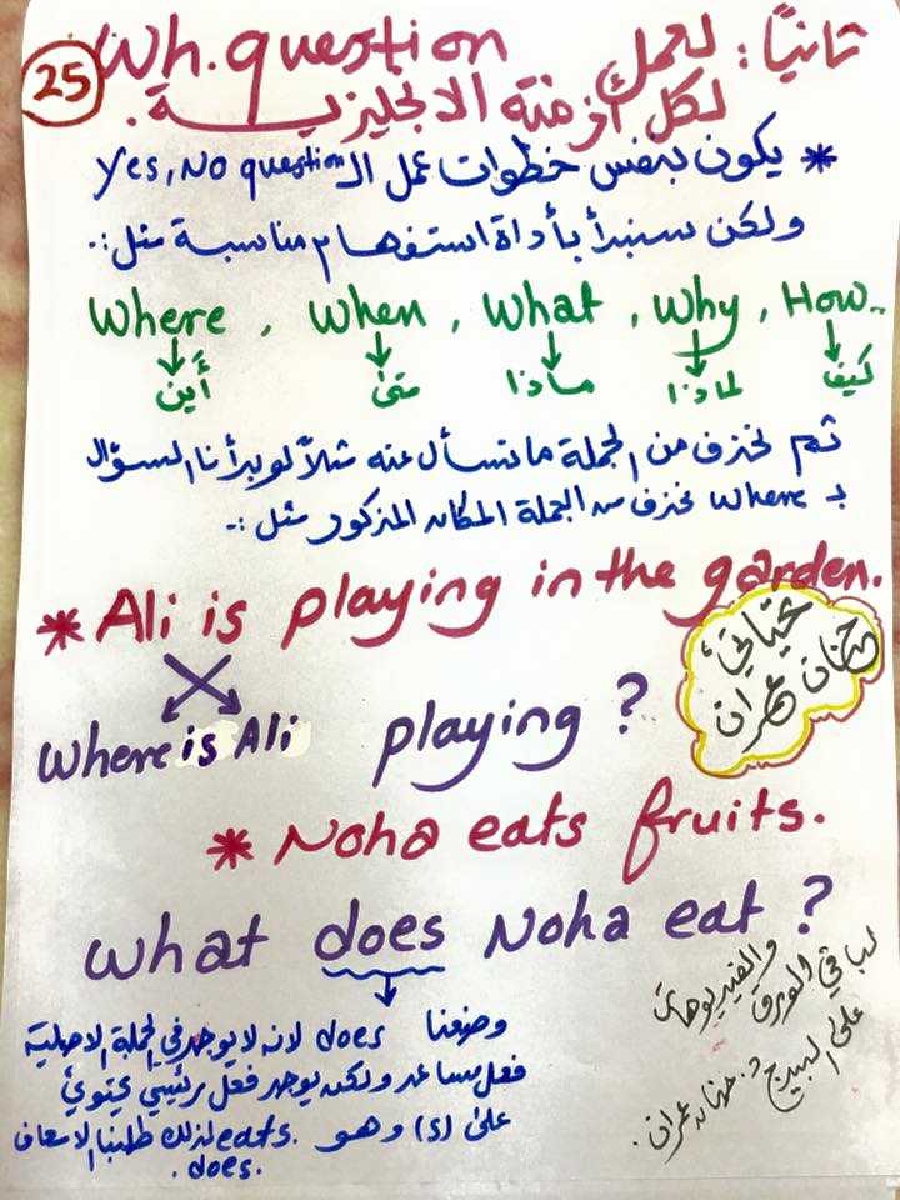 25
ثانيًا: لعمل Wh. question
لكل أزمنة الانجليزيـــة.
* يكون بنفس خطوات عمل الـ Yes, No question
ولكن سنبدأ بأداة استفهام مناسبة مثل:.
Where , When , What , Why , How..
أين متى ماذا لماذا كيف
ثم نحذف من الجملة ما نسأل عنه مثلاً لو بدأنا السؤال
بـ where نحذف من الجملة المكان المذكور مثل :-
* Ali is playing in the garden.
where is Ali playing ?
حنان عمران
* Noha eats fruits.
What does Noha eat ?
وضعنا does لانه لا يوجد في الجملة الاصلية
فعل مساعد ولكن يوجد فعل رئيسي يحتوي
على (s) وهو eats. لذلك طلبنا الاسعاف
does.
لباقي الورق
والفيديوهات
على البيدج د. حنان عمران.